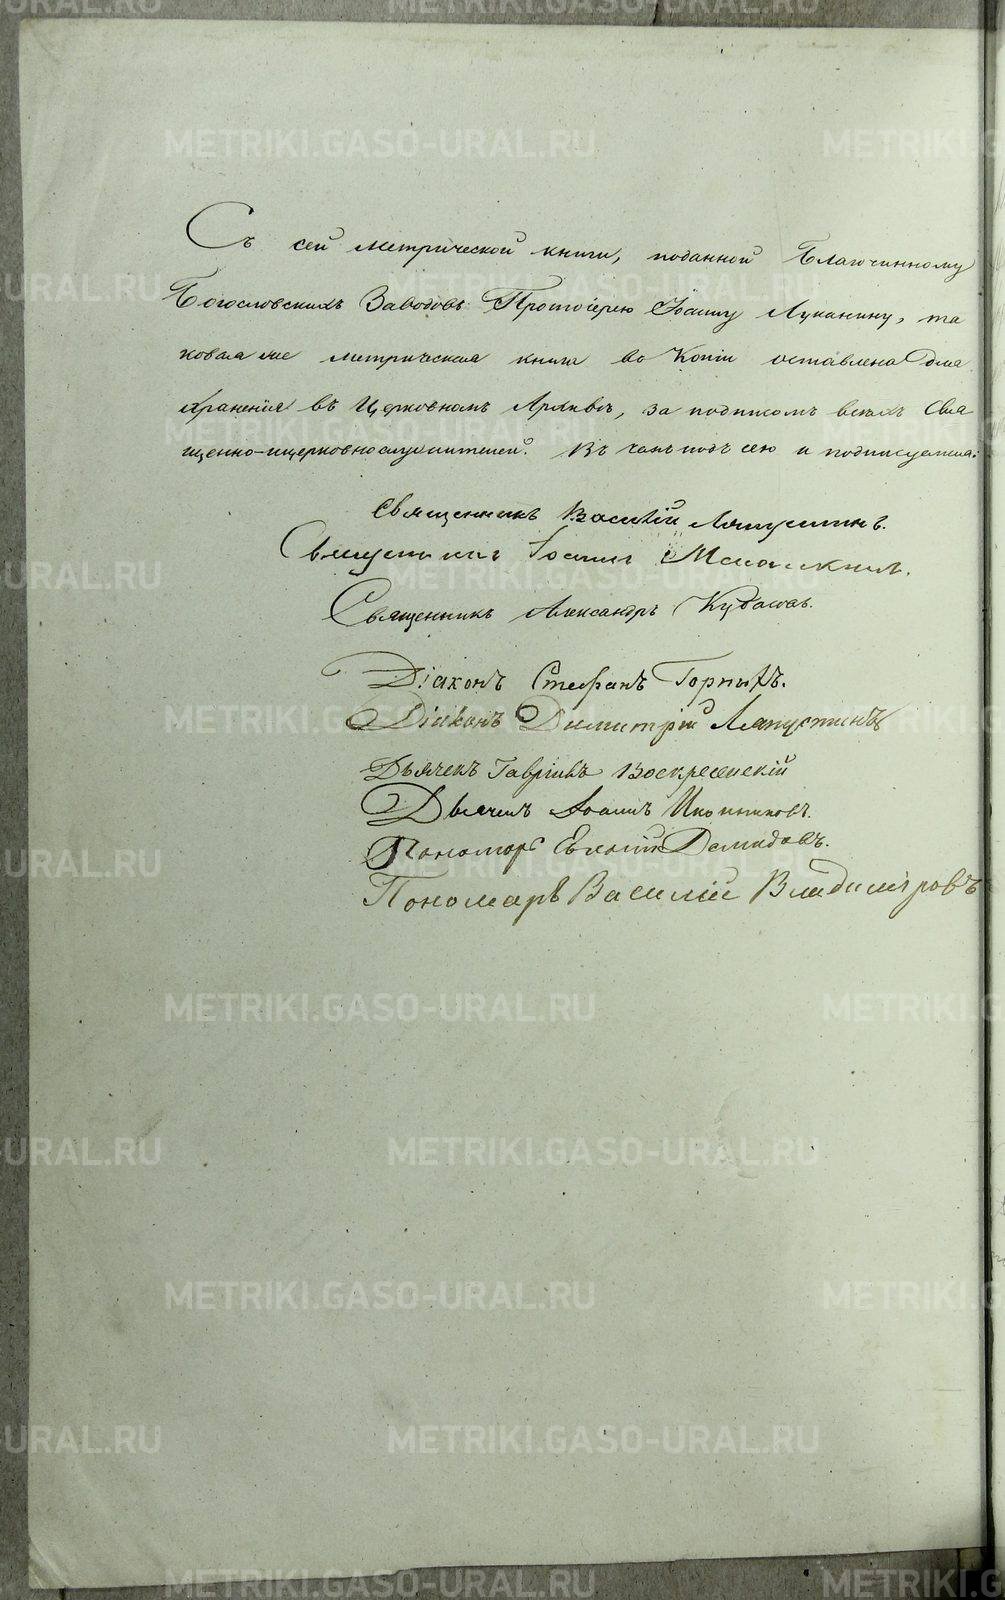 Съ сей метрической книги, поданной Благочинному
Богословскихъ Заводовъ Протоіерею Іоанну Луканину, та
ковая же метрическая книга въ Копіи оставлена для
храненія въ Церковномъ Архивѣ, за подписомъ всѣхъ Свя
щенно-ицерковнослужителей. Въ чемъ подъ сею и подписуемся:
Священникъ Василій Ляпустинъ.
Священникъ Іоаннъ
Священникъ Александръ
Діаконъ Стефанъ Горныхъ.
Діаконъ Димитрій Ляпустинъ
Дьячекъ Гавріилъ Воскресенскій
Дьячекъ Іоаннъ Иконниковъ.
Пономарь Евгеній Демидовъ.
Пономарь Василій Владиміровъ
METRIKI.GASO-URAL.RU